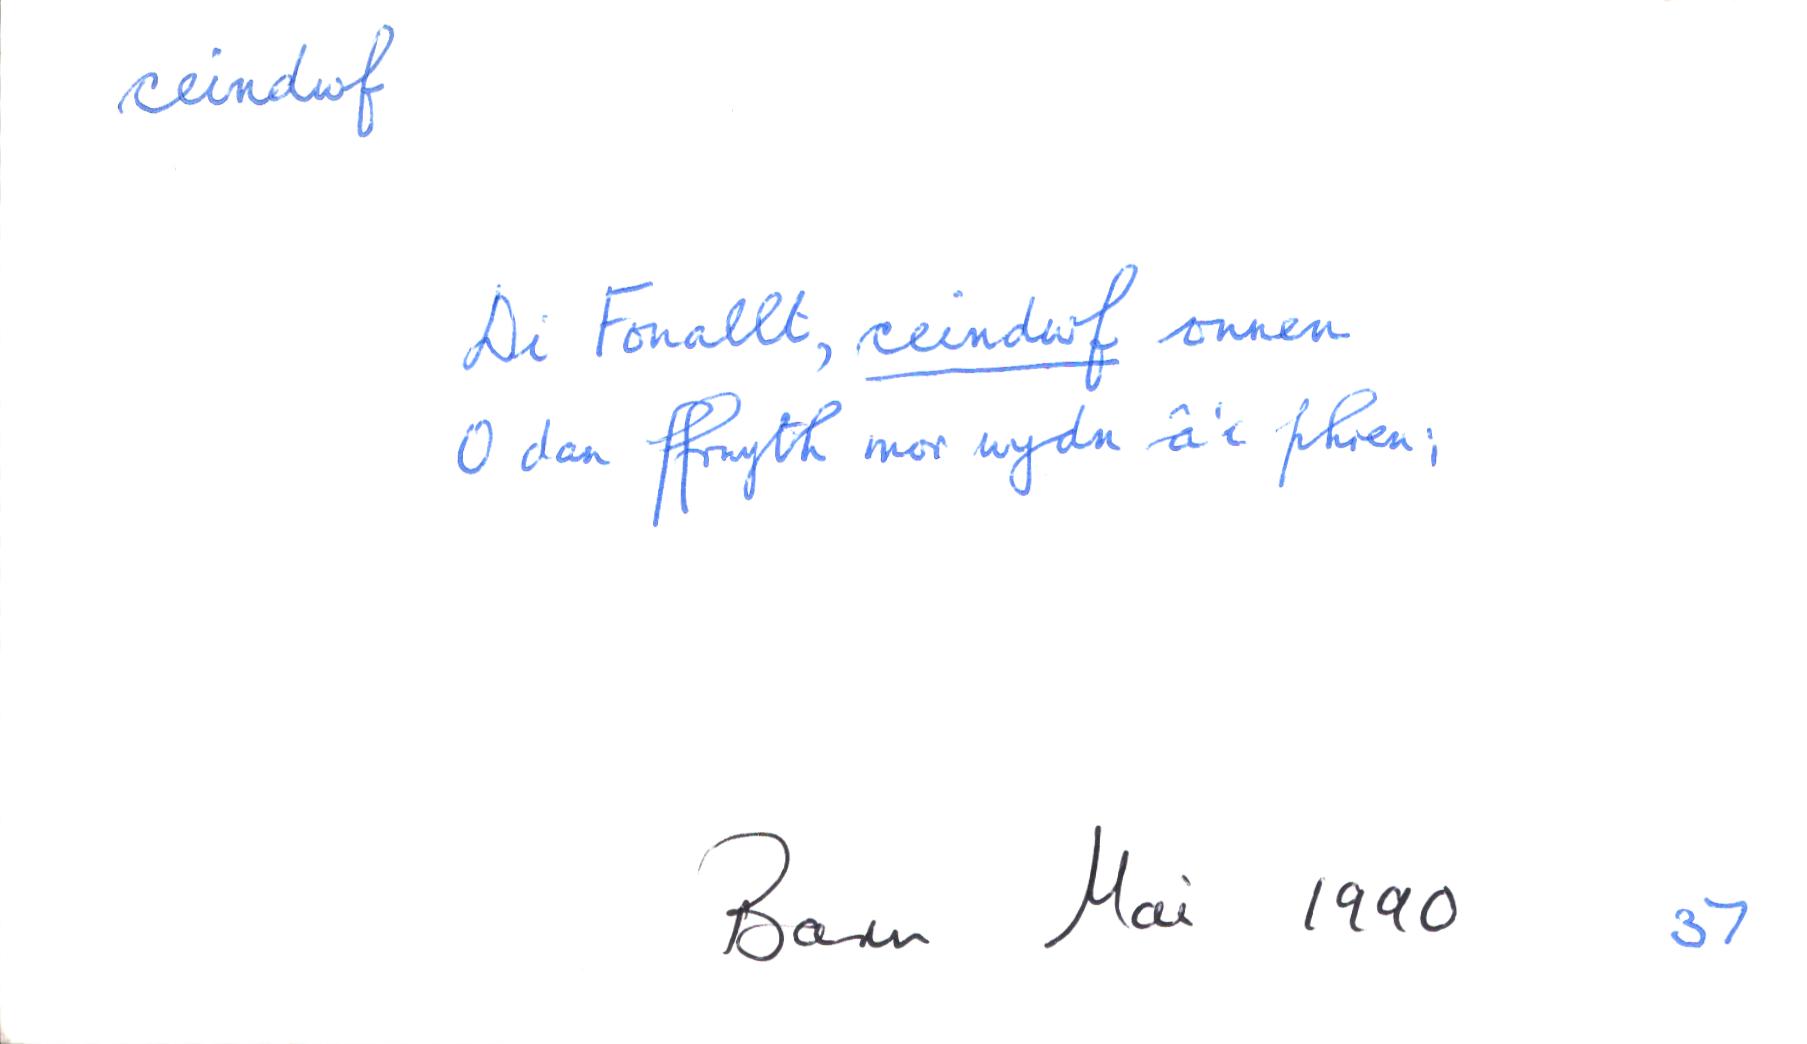 ceindwf
Di Fonallt, ceindwf onnen
O dan ffrwyth mor wydn â'i phren;
Barn Mai 1990 37